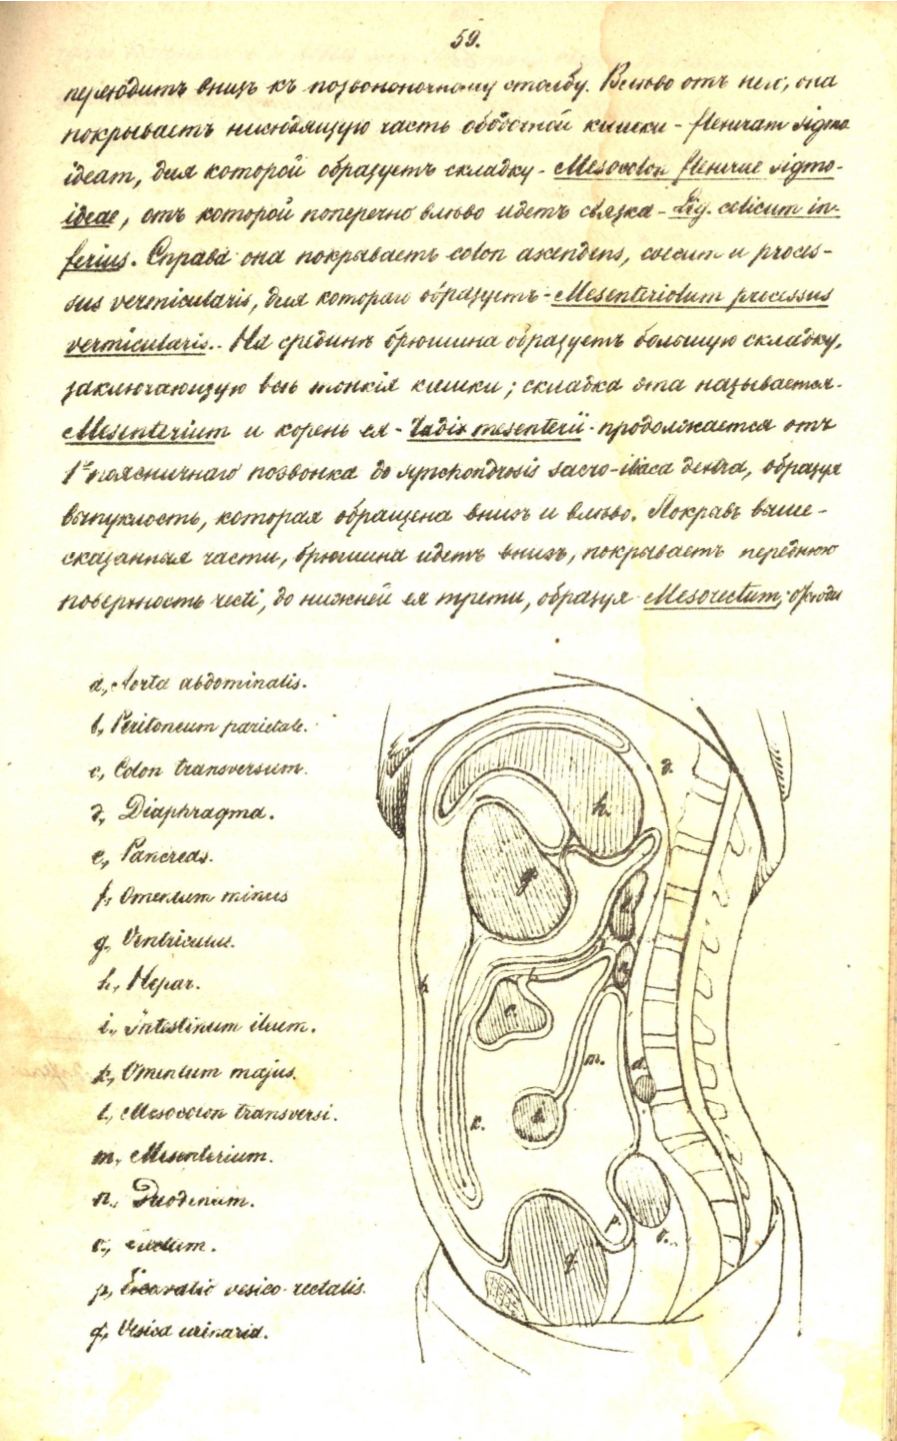 59.
переходитъ внизъ къ позвоночному столбу. Влѣво отъ нея, она
покрываетъ нисходящую часть ободочной кишки - flexuram sigmo
ideam, для которой образуетъ складку - Mesocolon flexurae sigmo-
ideae, отъ которой поперечно влѣво идетъ связка - Lig. colicum in-
ferius. Справа она покрываетъ colon ascendens, coecum и proces-
sus vermicularis, для котораго образуетъ - Mesenteriolum processus
vermicularis. - На срединѣ брюшина образуетъ большую складку,
заключающую всѣ тонкія кишки; складка эта называется -
Mesenterium и корень ея - Radix mesenterii - продолжается отъ
1го поясничнаго позвонка до synchondrosis sacro-iliaca dextra, образуя
выпуклость, которая обращена внизъ и влѣво. Покравъ выше-
сказанныя части, брюшина идетъ внизъ, покрываетъ переднюю
поверхность recti, до нижней ея трети, образуя Mesorectum;
a, Aorta abdominalis.
b, Peritoneum parietale.
c, Colon transversum.
d, Diaphragma.
e, Pancreas.
f, Omentum minus
g, Ventriculus.
h, Hepar.
i, Intestinum ileum.
k, Omentum majus.
l, Mesocolon transversi.
m, Mesenterium.
n, Duodenum.
o, Rectum.
p, Excavatio vesico-rectalis.
q, Vesica urinaria.
d.
h.
g
b
c.
m.
a.
k.
p
o.
q